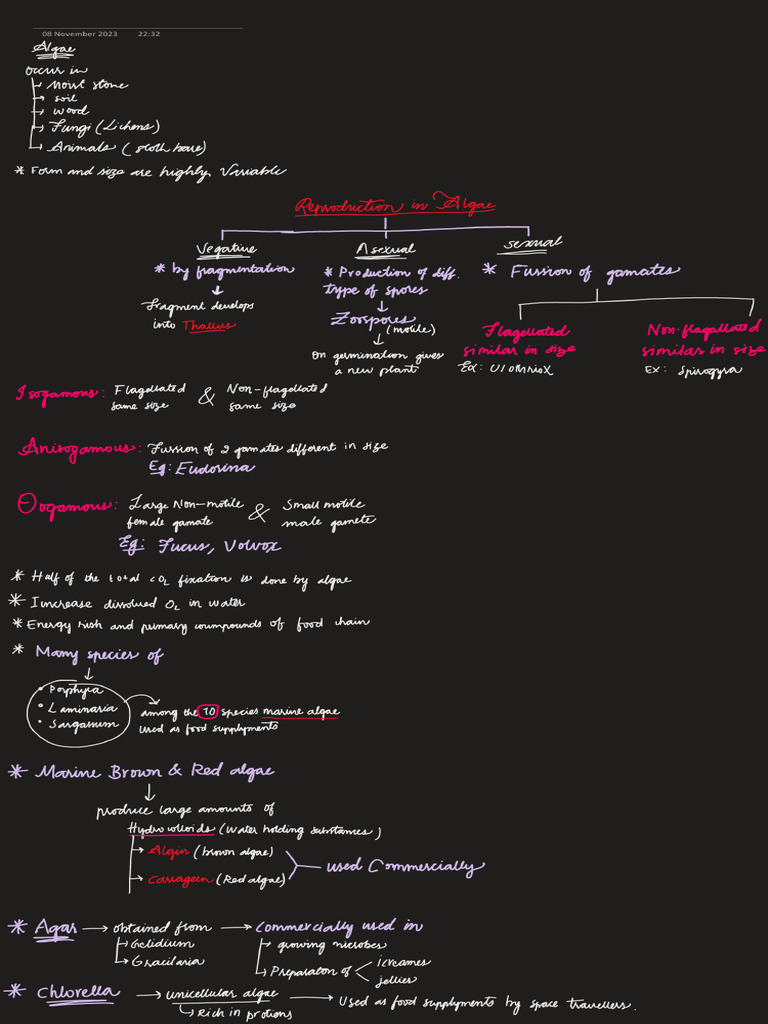 08 November 2023 22:32
Algae
occur in
Moist stone
soil
wood
Fungi (Lichens)
Animals (sloth bare)
* Form and size are highly Variable
Reproduction in Algae
Vegative Asexual sexual
* by fragmentation * Production of diff. * Fussion of gamates
type of spores
Fragment develops Zoospores
into Thallus (motile) Flagellated Non-flagallated
On germination gives similar in size similar in size
a new plant Ex: Ulothrix Ex: Spirogyra
Isogamous: Flagellated & Non-flagellated
same size same size
Anisogamous: Fussion of 2 gamates different in size
Eg: Eudorina
Oogamous: Large Non-motile & Small motile
female gamate male gamete
Eg: Fucus, Volvox
* Half of the total CO2 fixation is done by algae
* Increase dissolved O2 in water
* Energy rish and primary coumpounds of food chain
* Many species of
• Porphyra
• Laminaria among the 70 species marine algae
• Sargassum used as food supplyments
* Marine Brown & Red algae
produce large amounts of
Hydrocolloids (Water holding substances)
Algin (brown algae)
used Commercially
Carrageen (Red algae)
* Agar obtained from Commercially used in
Gelidium growing microbes
Gracilaria Preparation of icreames
jellies
* Chlorella unicellular algae Used as food supplyments by space travellers.
Rich in protions